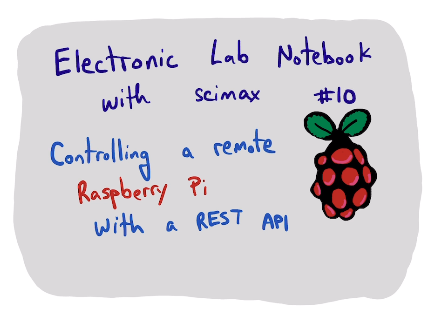 Electronic Lab Notebook
with scimax #10
Controlling a remote
Raspberry Pi
with a REST API